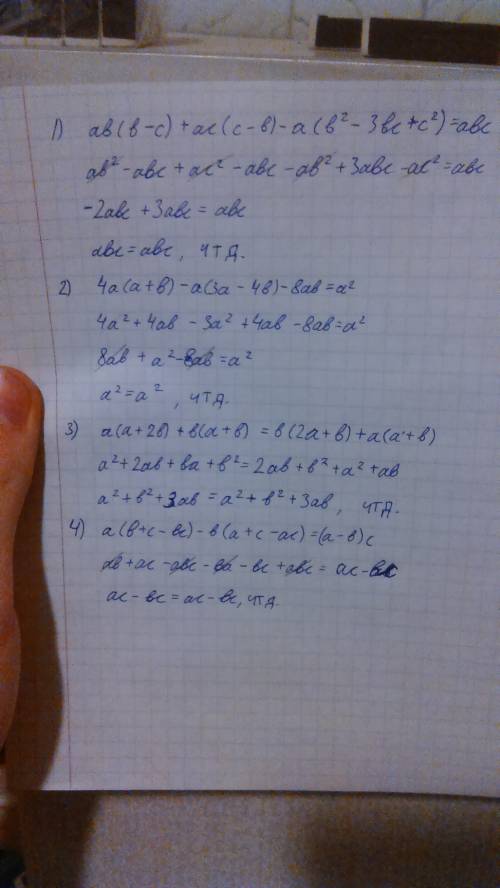 1) ab(b-c)+ac(c-b)-a(b²-3bc+c²)=abc
ab²-abc+ac²-abc-ab²+3abc-ac²=abc
-2abc+3abc=abc
abc=abc, чтд.
2) 4a(a+b)-a(3a-4b)-8ab=a²
4a²+4ab-3a²+4ab-8ab=a²
8ab+a²-8ab=a²
a²=a², чтд.
3) a(a+2b)+b(a+b)=b(2a+b)+a(a+b)
a²+2ab+ba+b²=2ab+b²+a²+ab
a²+b²+3ab=a²+b²+3ab, чтд.
4) a(b+c-bc)-b(a+c-ac)=(a-b)c
ab+ac-abc-ba-bc+abc=ac-bc
ac-bc=ac-bc, чтд.